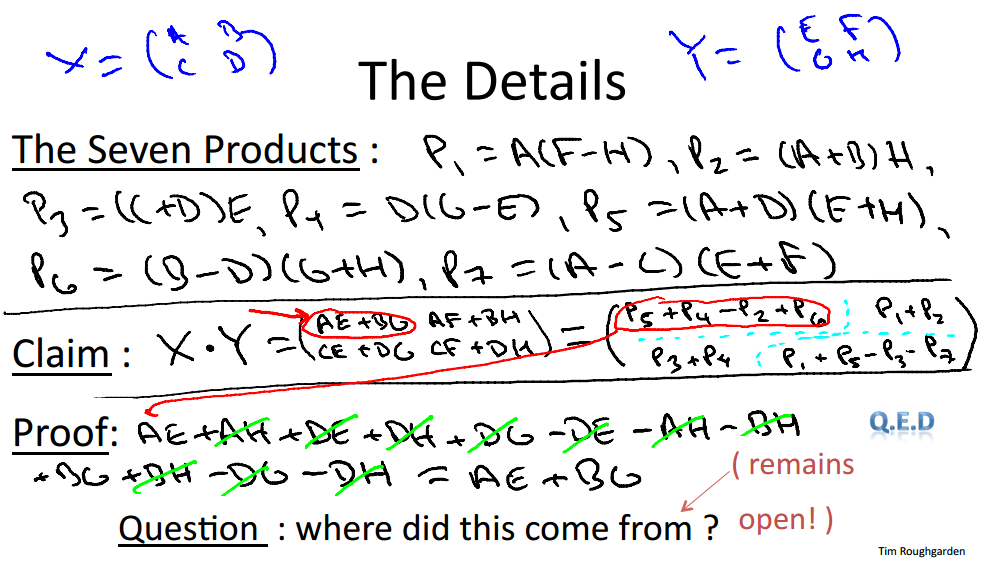 X = (A B
C D)
Y = (E F
G H)
The Details
The Seven Products : P₁ = A(F-H), P₂ = (A+B)H,
P₃ = (C+D)E, P₄ = D(G-E), P₅ = (A+D)(E+H),
P₆ = (B-D)(G+H), P₇ = (A-C)(E+F)
Claim : X · Y = (AE+BG AF+BH
CE+DG CF+DH) = (P₅+P₄-P₂+P₆ P₁+P₂
P₃+P₄ P₁+P₅-P₃-P₇)
Proof: AE+AH+DE+DH+DG-DE-AH-BH
+BG+BH-DG-DH = AE+BG
Q.E.D
Question : where did this come from ?
( remains
open! )
Tim Roughgarden